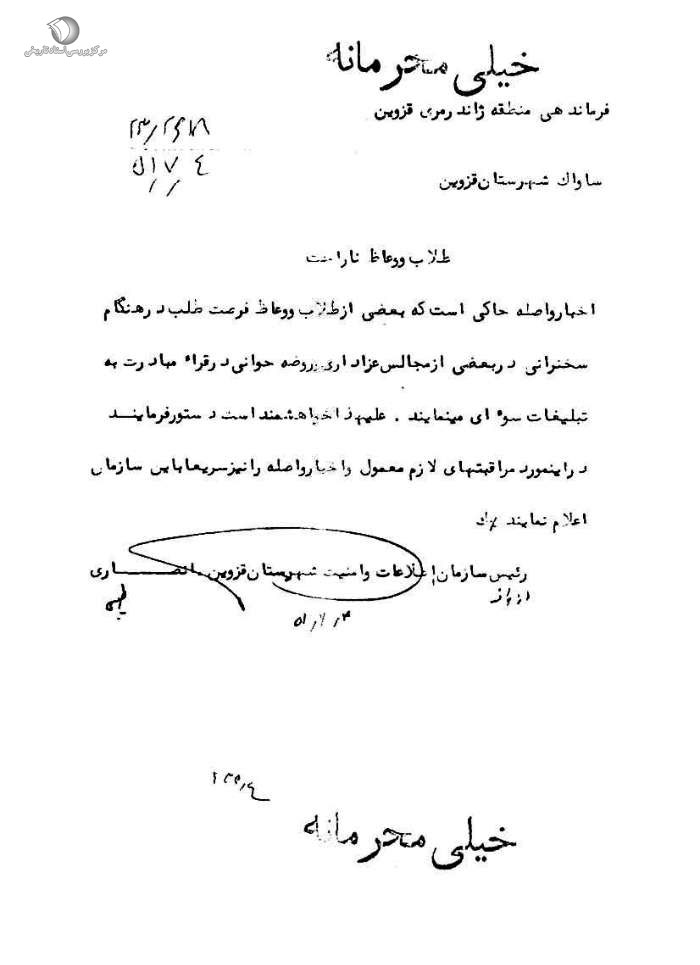 مرکز بررسی اسناد تاریخی
خیلی محرمانه
فرماندهی منطقه ژاندرمری قزوین
ساواك شهرستان قزوین
طلاب ووعاظ ناراحت
اخبار واصله حاکی است که بعضی از طلاب ووعاظ فرصت طلب در هنگام
سخنرانی در بعضی از مجالس عزاداری و روضه خوانی در قراء مبادرت به
تبلیغات سوء ای مینمایند . علیهذا خواهشمند است دستور فرماینــد
در اینمورد مراقبتهای لازم معمول واخبار واصله را نیز سریعا باین سازمان
اعلام نمایند
رئیس سازمان اطلاعات وامنیت شهرستان قزوین . انصــاری
خیلی محرمانه